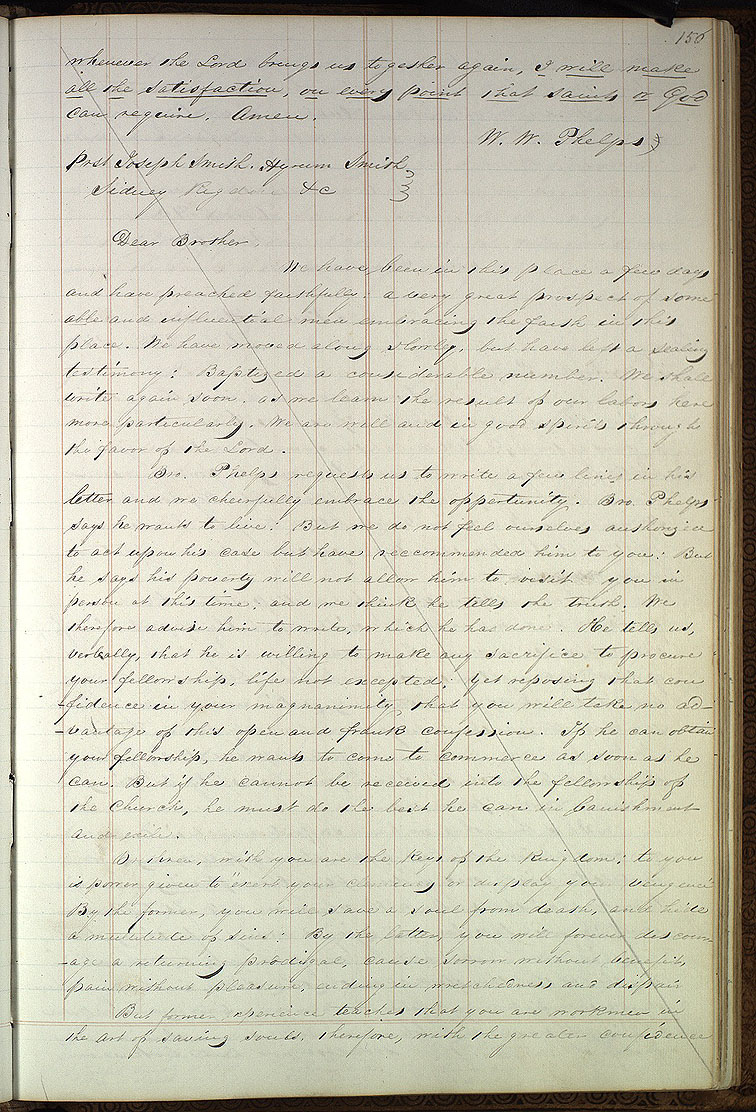 156
whenever the Lord brings us together again, I will make
all the satisfaction, on every point that saints or God
can require. Amen.
W. W. Phelps
Prst Joseph Smith, Hyrum Smith,
Sidney Rigdon &c
Dear Brother,
We have been in this place a few days
and have preached faithfully: a very great prospect of some
able and influential men embracing the faith in this
place. We have moved along slowly, but have left a sealing
testimony: Baptized a considerable number. We shall
write again soon. as we learn the result of our labors here
more particularly. We are well and in good spirits through
the favor of the Lord.
Bro. Phelps requests us to write a few lines in his
letter and we cheerfully embrace the opportunity. Bro. Phelps
says he wants to live: But we do not feel ourselves
to act upon his case but have reccommended him to you: But
he says his poverty will not allow him to visit you in
person at this time; and we think he tells the truth. We
therefore advise him to write, which he has done. He tells us,
verbally, that he is willing to make any sacrifice to procure
your fellowship, life not excepted; yet reposing that con
fidence in your magnanimity, that you will take no ad-
-vantage of this open and frank confession. If he can obtain
your fellowship, he wants to come to commerce as soon as he
can. But if he cannot be received into the fellowship of
the Church, he must do the best he can in banishment
and exile.
Brethren, with you are the Keys of the Kingdom; to you
is power given to "exert your clemency or display your
By the former, you will save a soul from death, and hide
a multitude of sins: By the latter, you will forever discour-
-age a returning prodigal, cause sorrow without benefit,
pain without pleasure, ending in wretchedness and dispair
But former experience teaches that you are workmen in
the art of saving souls, therefore, with the greater confidence